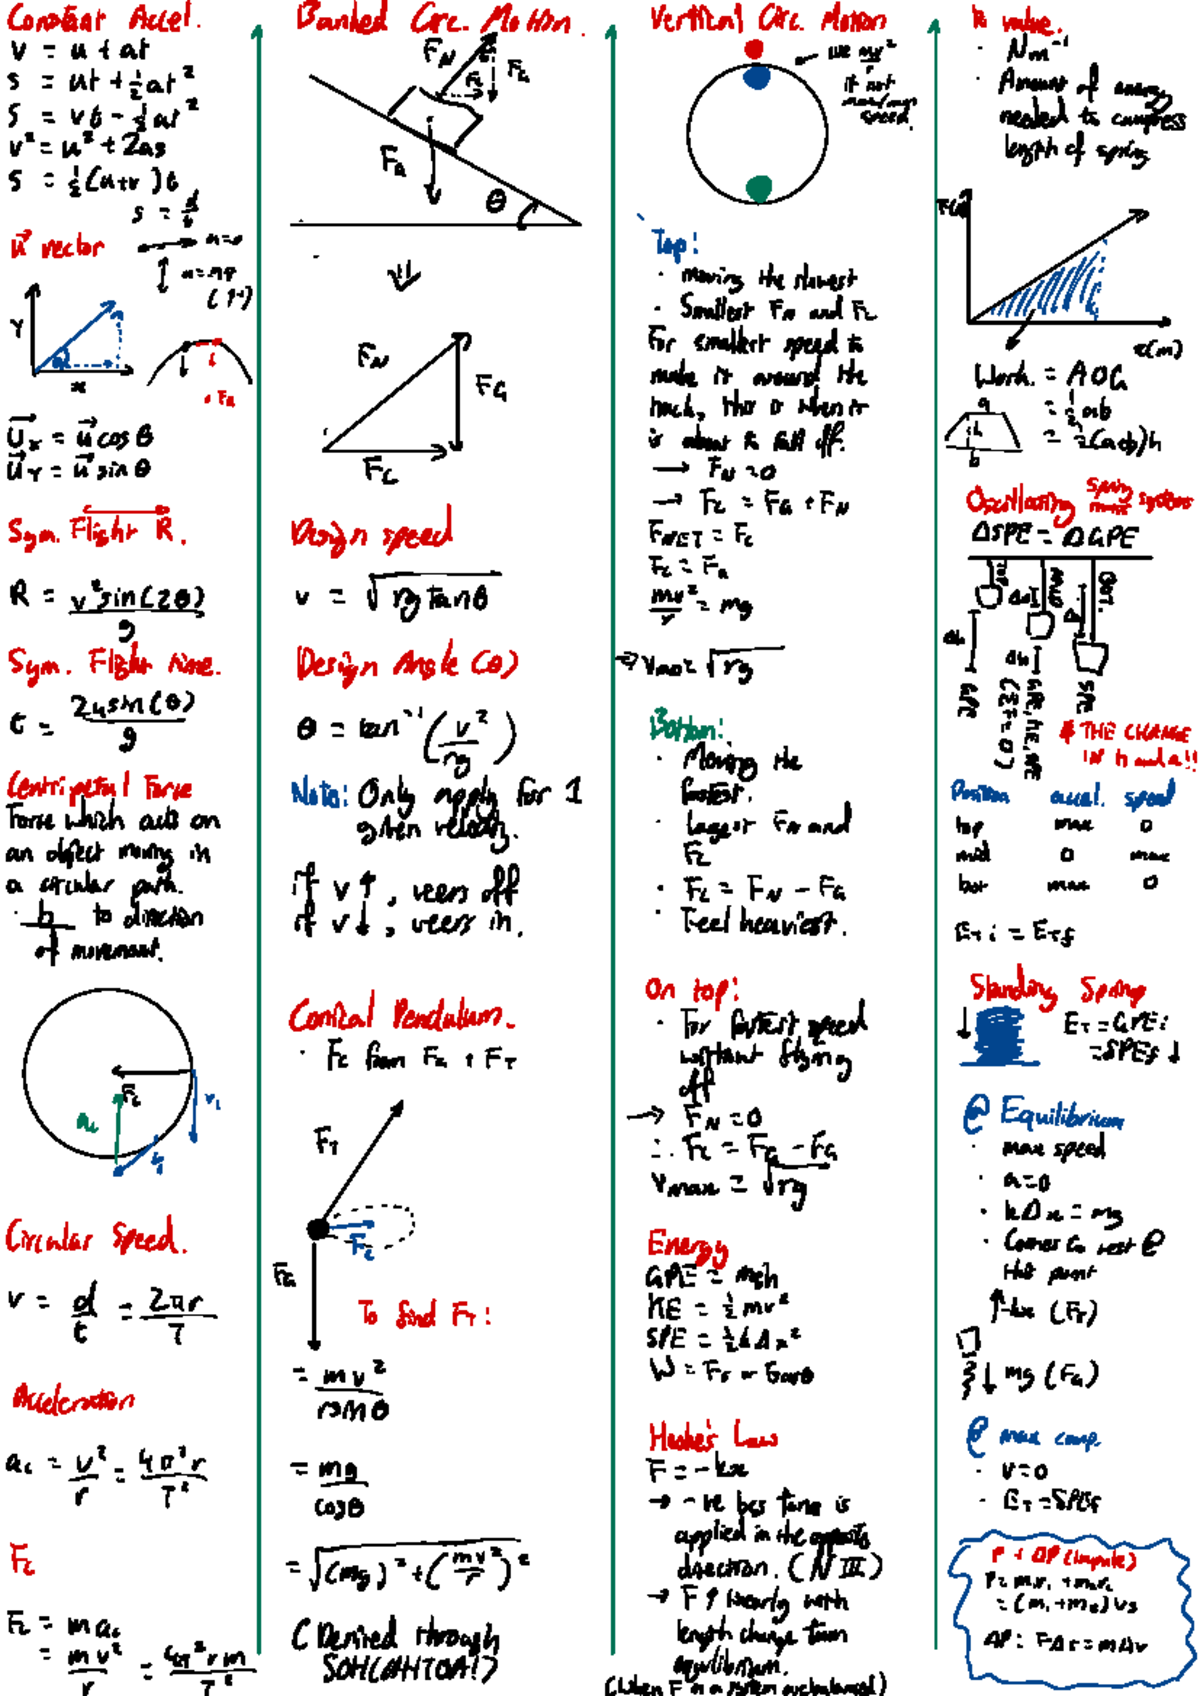 Constant Accel.
v = u + at
s = ut + ½at²
s = vt - ½at²
v² = u² + 2as
s = ½(u+v)t
s = d/t
u⃗ vector
u=0
(↑+)
Y
x
F_g
U⃗x = u⃗ cos θ
u⃗Y = u⃗ sin θ
Sym. Flight R.
R = v² sin(2θ) / g
Sym. Flight time.
t = 2u sin(θ) / g
Centripetal Force
Force which acts on
an object moving in
a circular path.
to direction
of movement.
Fc
ac
v₁
Circular Speed.
v = d/t = 2πr/T
Acceleration
ac = v²/r = 4π²r/T²
Fc
Fc = mac
= mv²/r = 4π²rm/T²
Banked Circ. Motion.
F_N
Fc
F_G
F_G
θ
F_N
F_G
F_C
Design speed
v = √rg tanθ
Design Angle (θ)
θ = tan⁻¹(v²/rg)
Note: Only apply for 1
given velocity.
if v ↑, veers off
if v ↓, veers in.
Conical Pendulum.
· Fc from FG + FT
F_T
F_c
F_G
To find F_T:
= mv²/r sin θ
= mg/cos θ
= √(mg)² + (mv²/r)²
(Derived through
SOHCAHTOA!)
Vertical Circ. Motion
use mv²/r
if not
max/min
speed.
Top:
· moving the slowest
· Smallest F_N and Fc
For smallest speed to
make it around the
track, this is when it
is about to fall off.
→ F_N = 0
→ Fc = FG + FN
F_NET = Fc
Fc = FG
mv²/r = mg
⇒ vmax = √rg
Bottom:
· Moving the
fastest.
· Largest F_N and
Fc
· Fc = F_N - F_G
· Feel heaviest.
On top:
· For fastest speed
without flying
off
→ F_N = 0
∴ Fc = FG - FG
Vmax = √rg
Energy
GPE = mgh
KE = ½mv²
SPE = ½kΔx²
Hooke's Law
F = -kx
→ -ve bcs force is
applied in the opposite
direction. (N III)
→ F ↑ linearly with
length change from
equilibrium.
k value.
· Nm⁻¹
· Amount of energy
needed to compress
length of spring
x(m)
Work. = AOG
= ½ab
= ½(a+b)h
a
h
b
Oscillating spring mass systems
ΔSPE = ΔGPE
TOP
MID
BOT.
Δh
GPE
SPE
* THE CHANGE
IN h and x!!
Position accel. speed
top max 0
mid 0 max
bot max 0
ETi = ETf
Standing Spring
ET = GPEi
= SPEf ↓
@ Equilibrium
· max speed
· a=0
· kΔx = mg
· Comes to rest @
this point
↑-kx (FT)
↓ mg (FG)
@ max comp.
· v=0
· ET = SPEf
P + ΔP (impulse)
= (m₁+m₂)v₃
ΔP = FΔt = mΔv